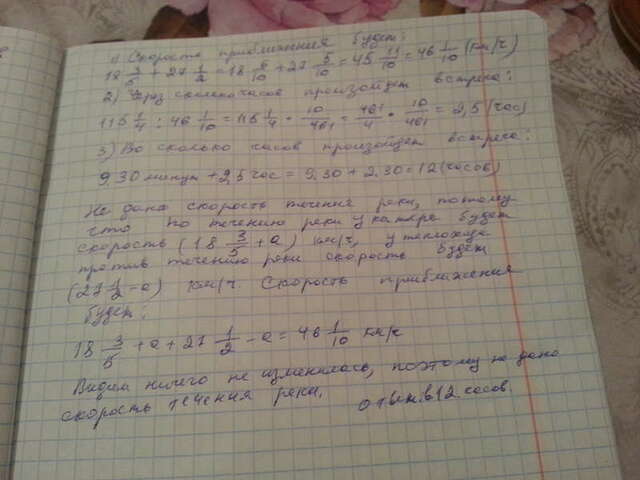 1) Скорость приближения будет:
18 3/5 + 27 1/2 = 18 6/10 + 27 5/10 = 45 11/10 = 46 1/10 (км/ч)
2) Через сколько часов произойдет встреча:
115 1/4 : 46 1/10 = 115 1/4 · 10/461 = 461/4 · 10/461 = 2,5 (час)
3) Во сколько часов произойдет встреча:
9.30 минут + 2,5 час = 9.30 + 2.30 = 12 (часов)
Не дана скорость течения реки, потому
что по течению реки у катера будет
скорость (18 3/5 + а) км/ч, у теплохода
против течению реки скорость будет
(27 1/2 - а) км/ч. Скорость приближения
будет:
18 3/5 + а + 27 1/2 - а = 46 1/10 км/ч
Видем ничего не изменилась, поэтому не дана
скорость течения реки.
ответ. в 12 часов.